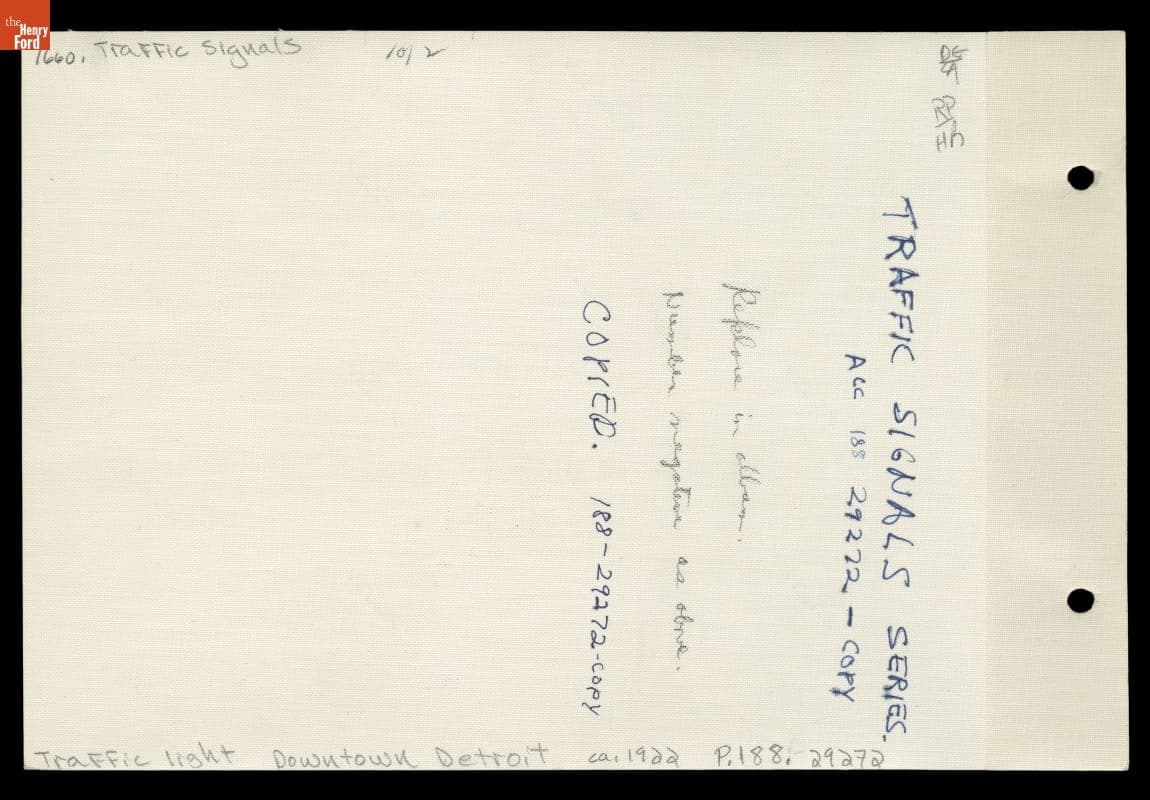 the
Henry
Ford
1660. Traffic Signals 10/2
TRAFFIC SIGNALS SERIES.
Acc 188 29272 - COPY
in album.
Number negative as above.
COPIED. 188-29272-COPY
Traffic light Downtown Detroit ca. 1922 P.188. 29272